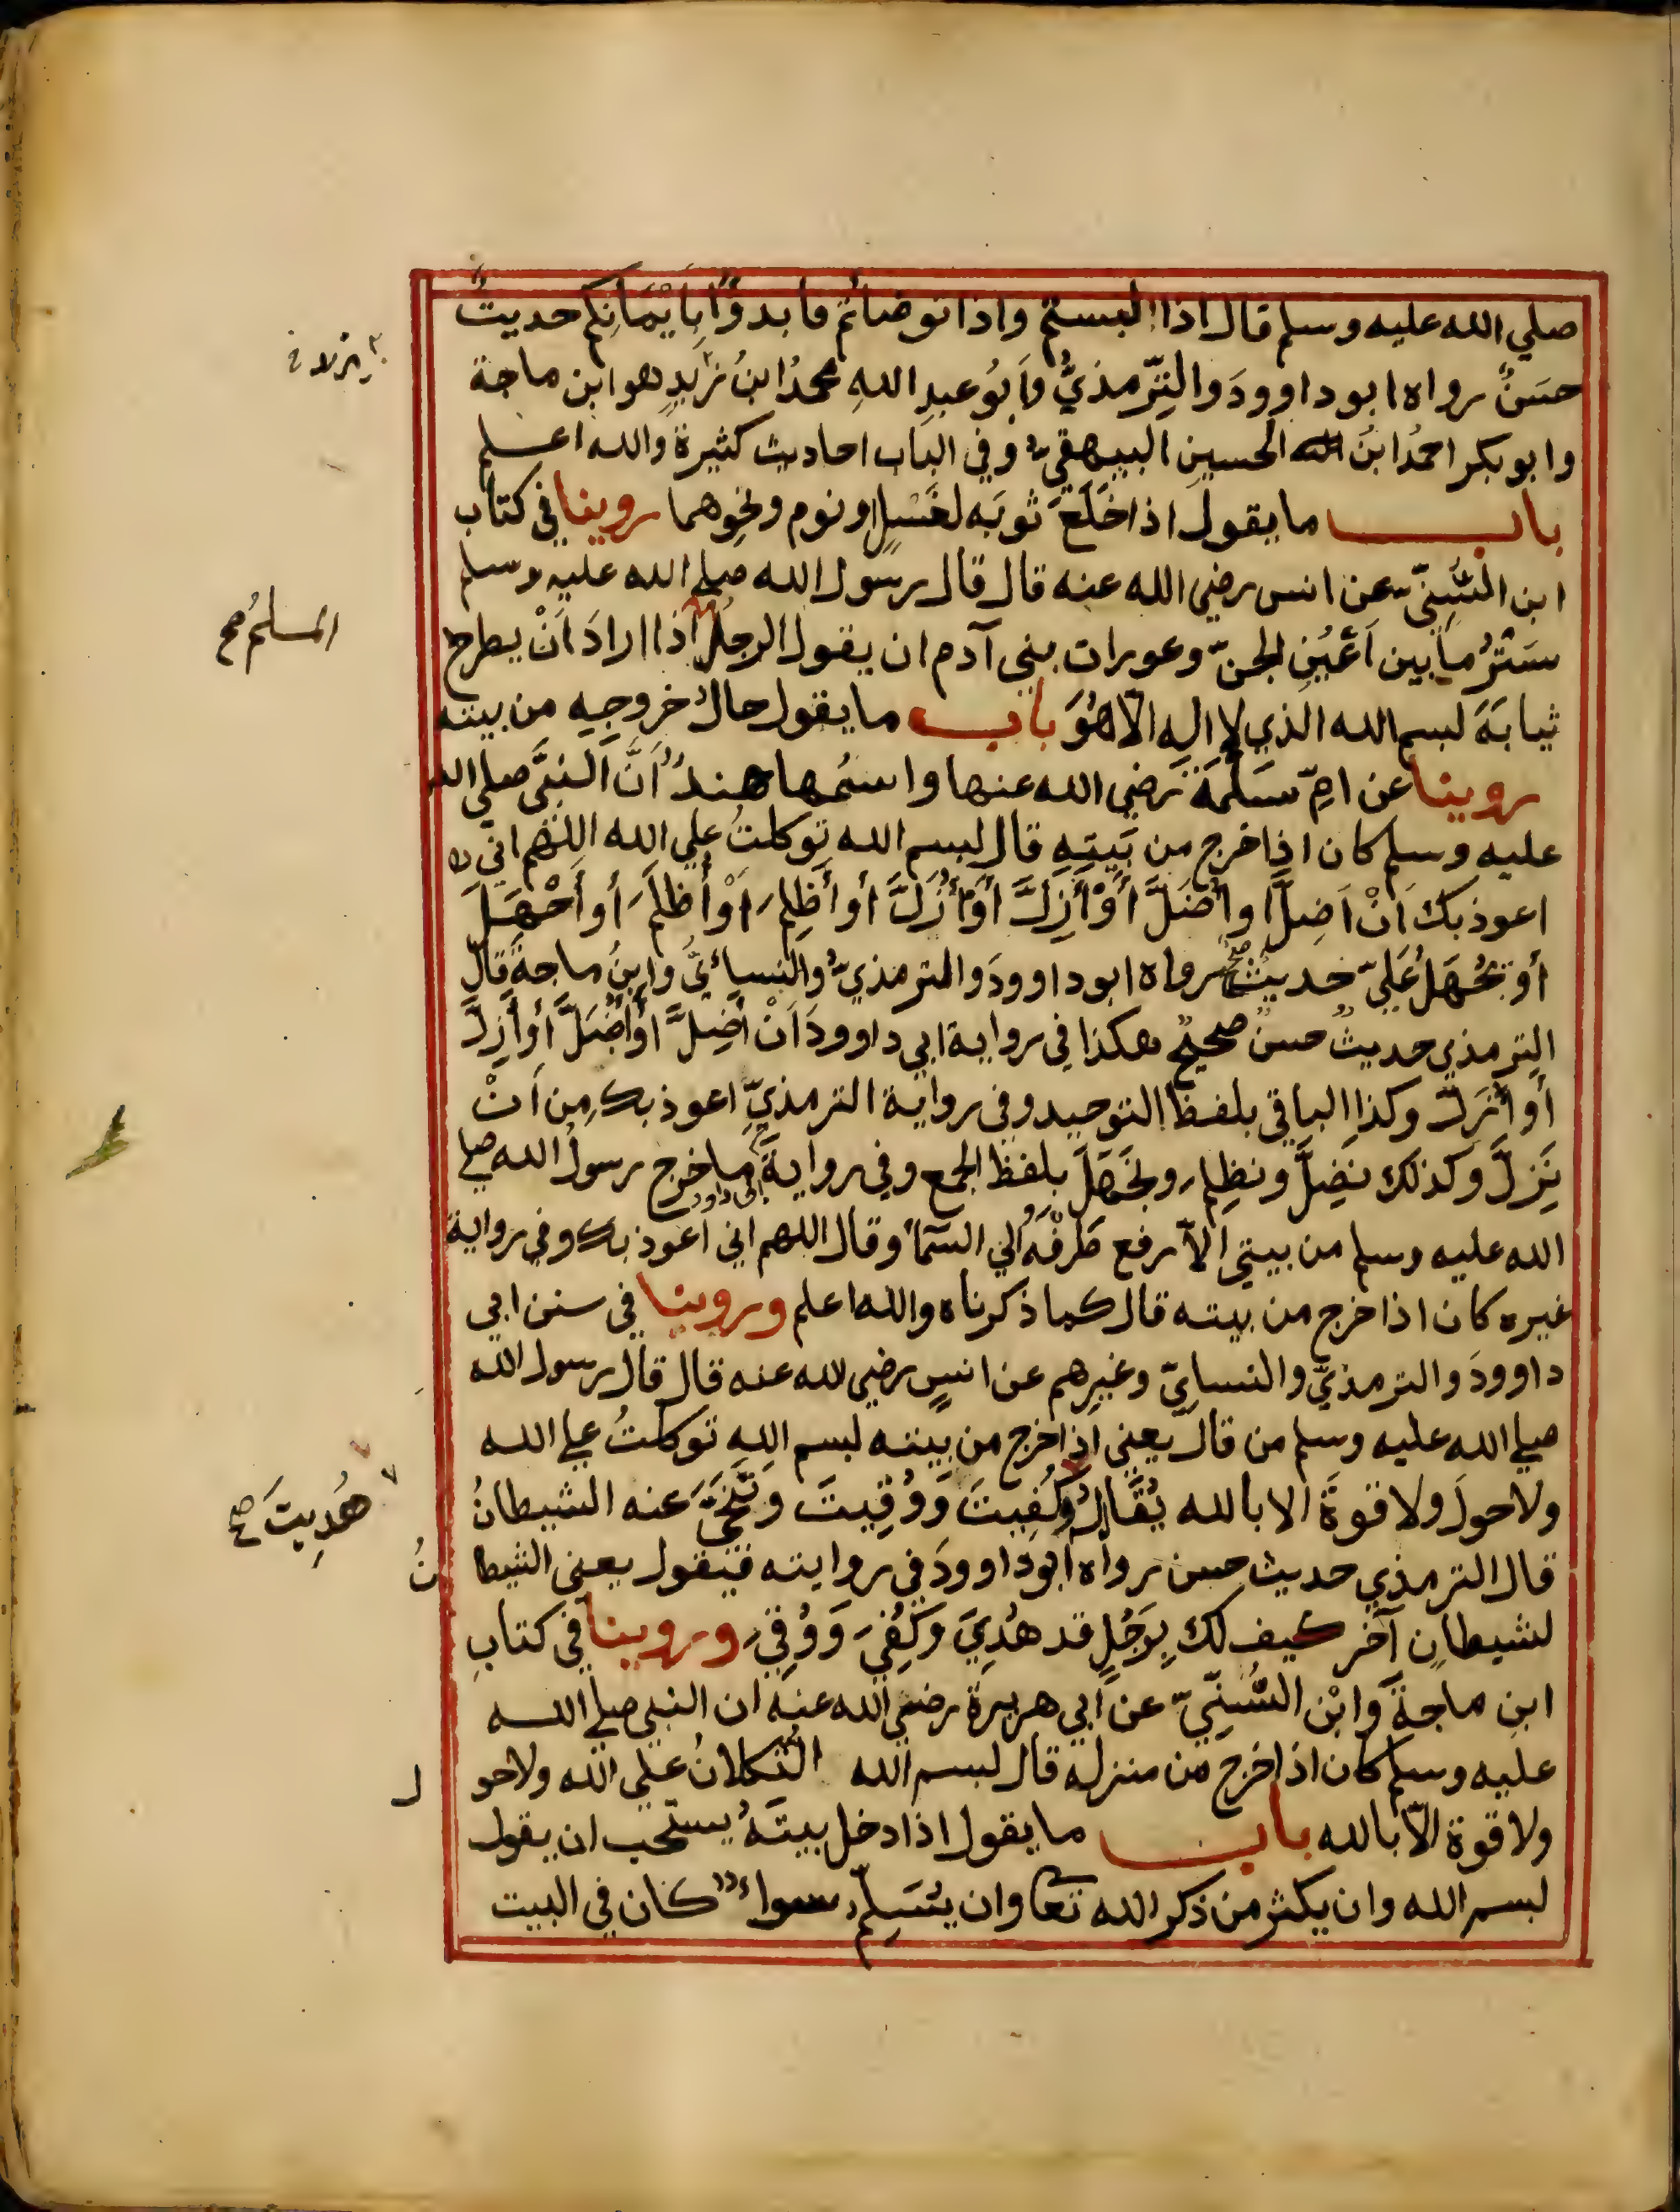 صلي الله عليه وسلم قال اذا لبستم واذا توضاتم فابدوا بِاَيْمَانِكم حديثٌ
حسَنٌ رواه ابو داوودَ والتِّرمذيُّ وَابُو عبدِ اللهِ محمدُ ابنُ يزيدِ هو ابن ماجة
وابو بكر احمدُ ابنُ الحسينِ البيهقيّ وفي الباب احاديث كثيرة والله اعلم
باب ما يقول اذا خَلَعَ ثوبَه لغَسْلٍ او نوم ونحوِهما روينا في كتاب
ابن السُّنِيّ عن انس رضي الله عنه قال قال رسول الله صلي الله عليه وسلم
سَتْرُ ما بين اَعْيُنِ الجنّ وعورات بني آدم ان يقول الرجلُ اذا ارادَ اَنْ يطرح
المسلمُ صح
ثيابَهَ لبسم الله الذي لا اله الاّ هُوَ باب ما يقول حالَ خروجِهِ من بيته
روينا عن امِّ سَلَمَةَ رَضي الله عنها واسمُها هندٌ اَنَّ النبيَّ صلي الله
عليه وسلم كان اذا خرج من بَيتِهِ قال لبسم الله توكلتُ علي الله اللهم اني
اعوذ بك اَنْ اَضِلَّ او أُضَلَّ أَوْ أَزِلَّ أَوْ أُزَلَّ أو أَظلِمَ اَوْ أُظلَمَ أو أَجْهَلَ
أو يُجْهَلَ عَليّ حديثٌ صح رواه ابو داوودَ والترمذيّ والنسائيُّ وابنُ ماجةَ قال
الترمذي حديثٌ حسنٌ صحيحٌ هكذا في رواية ابي داوودَ اَنْ أَضِلَّ أو أُضَلَّ أو أَزِلَّ
أو أُزَلّ وكذا الباقي بلفظ التوحيد وفي رواية الترمذيّ اعوذ بك من اَنْ
نَزِلَّ وكذلك نَضِلَّ ونظلِمَ ونَجهَلَ بلفظ الجمع وفي رواية ابي داود ما خرج رسولُ الله صلي
الله عليه وسلم من بيتي الاّ رفع طَرْفَهُ الي السَّمآ وقال اللهم اني اعوذ بك وفي رواية
غيره كان اذا خرج من بيته قال كما ذكرناه والله اعلم وروينا في سنن ابي
داوودَ والترمذيّ والنسايّ وغيرِهم عن انسٍ رضي لله عنه قال قال رسول الله
صلي الله عليه وسلم من قال يعني اذا خرج من بيته لبسم اللهِ توكلتُ علي الله
ولا حولَ ولا قوةَ الا بالله يُقَالُ وَكُفِيتَ وَوُقِيتَ وَتَنَحَّيَ عنه الشيطانُ
هُدِيتَ صح
قال الترمذي حديث حسن رواه ابو داوودَ في روايته فيقول يعني الشيطانُ
لشيطانٍ آخر كيف لك بِرَجُلٍ قد هُدِيَ وَكُفِيَ وَوُقِيَ وروينا في كتابِ
ابنِ ماجةَ وَابْن السُّنِّيّ عن ابي هريرة رضي الله عنه ان النبي صلي الله
عليه وسلم كان اذا خرج من منزله قال لبسم الله التُكلانُ علي الله ولا حول
ولا قوة الاّ بالله باب ما يقول اذا دخل بيتَهُ يستحب ان يقول
لبسم الله وان يكثر من ذكر الله تعا وان يُسَلِّمَ سواءٌ كان في البيت